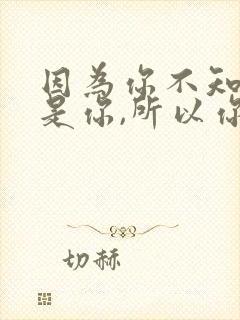 因為你不知
是你,所以你
切赫